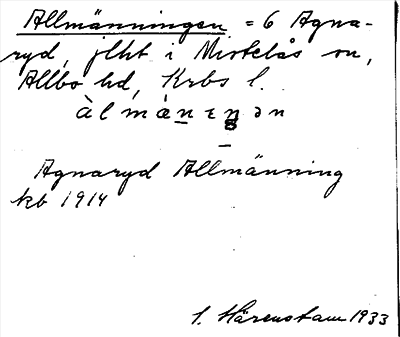 Allmänningen = 6 Agna-
ryd, jlht i Mistelås sn,
Allbo hd, Krbs l.
àlmæ̀nɛŋən
Agnaryd Allmänning
kb 1914
S. Härenstam 1933